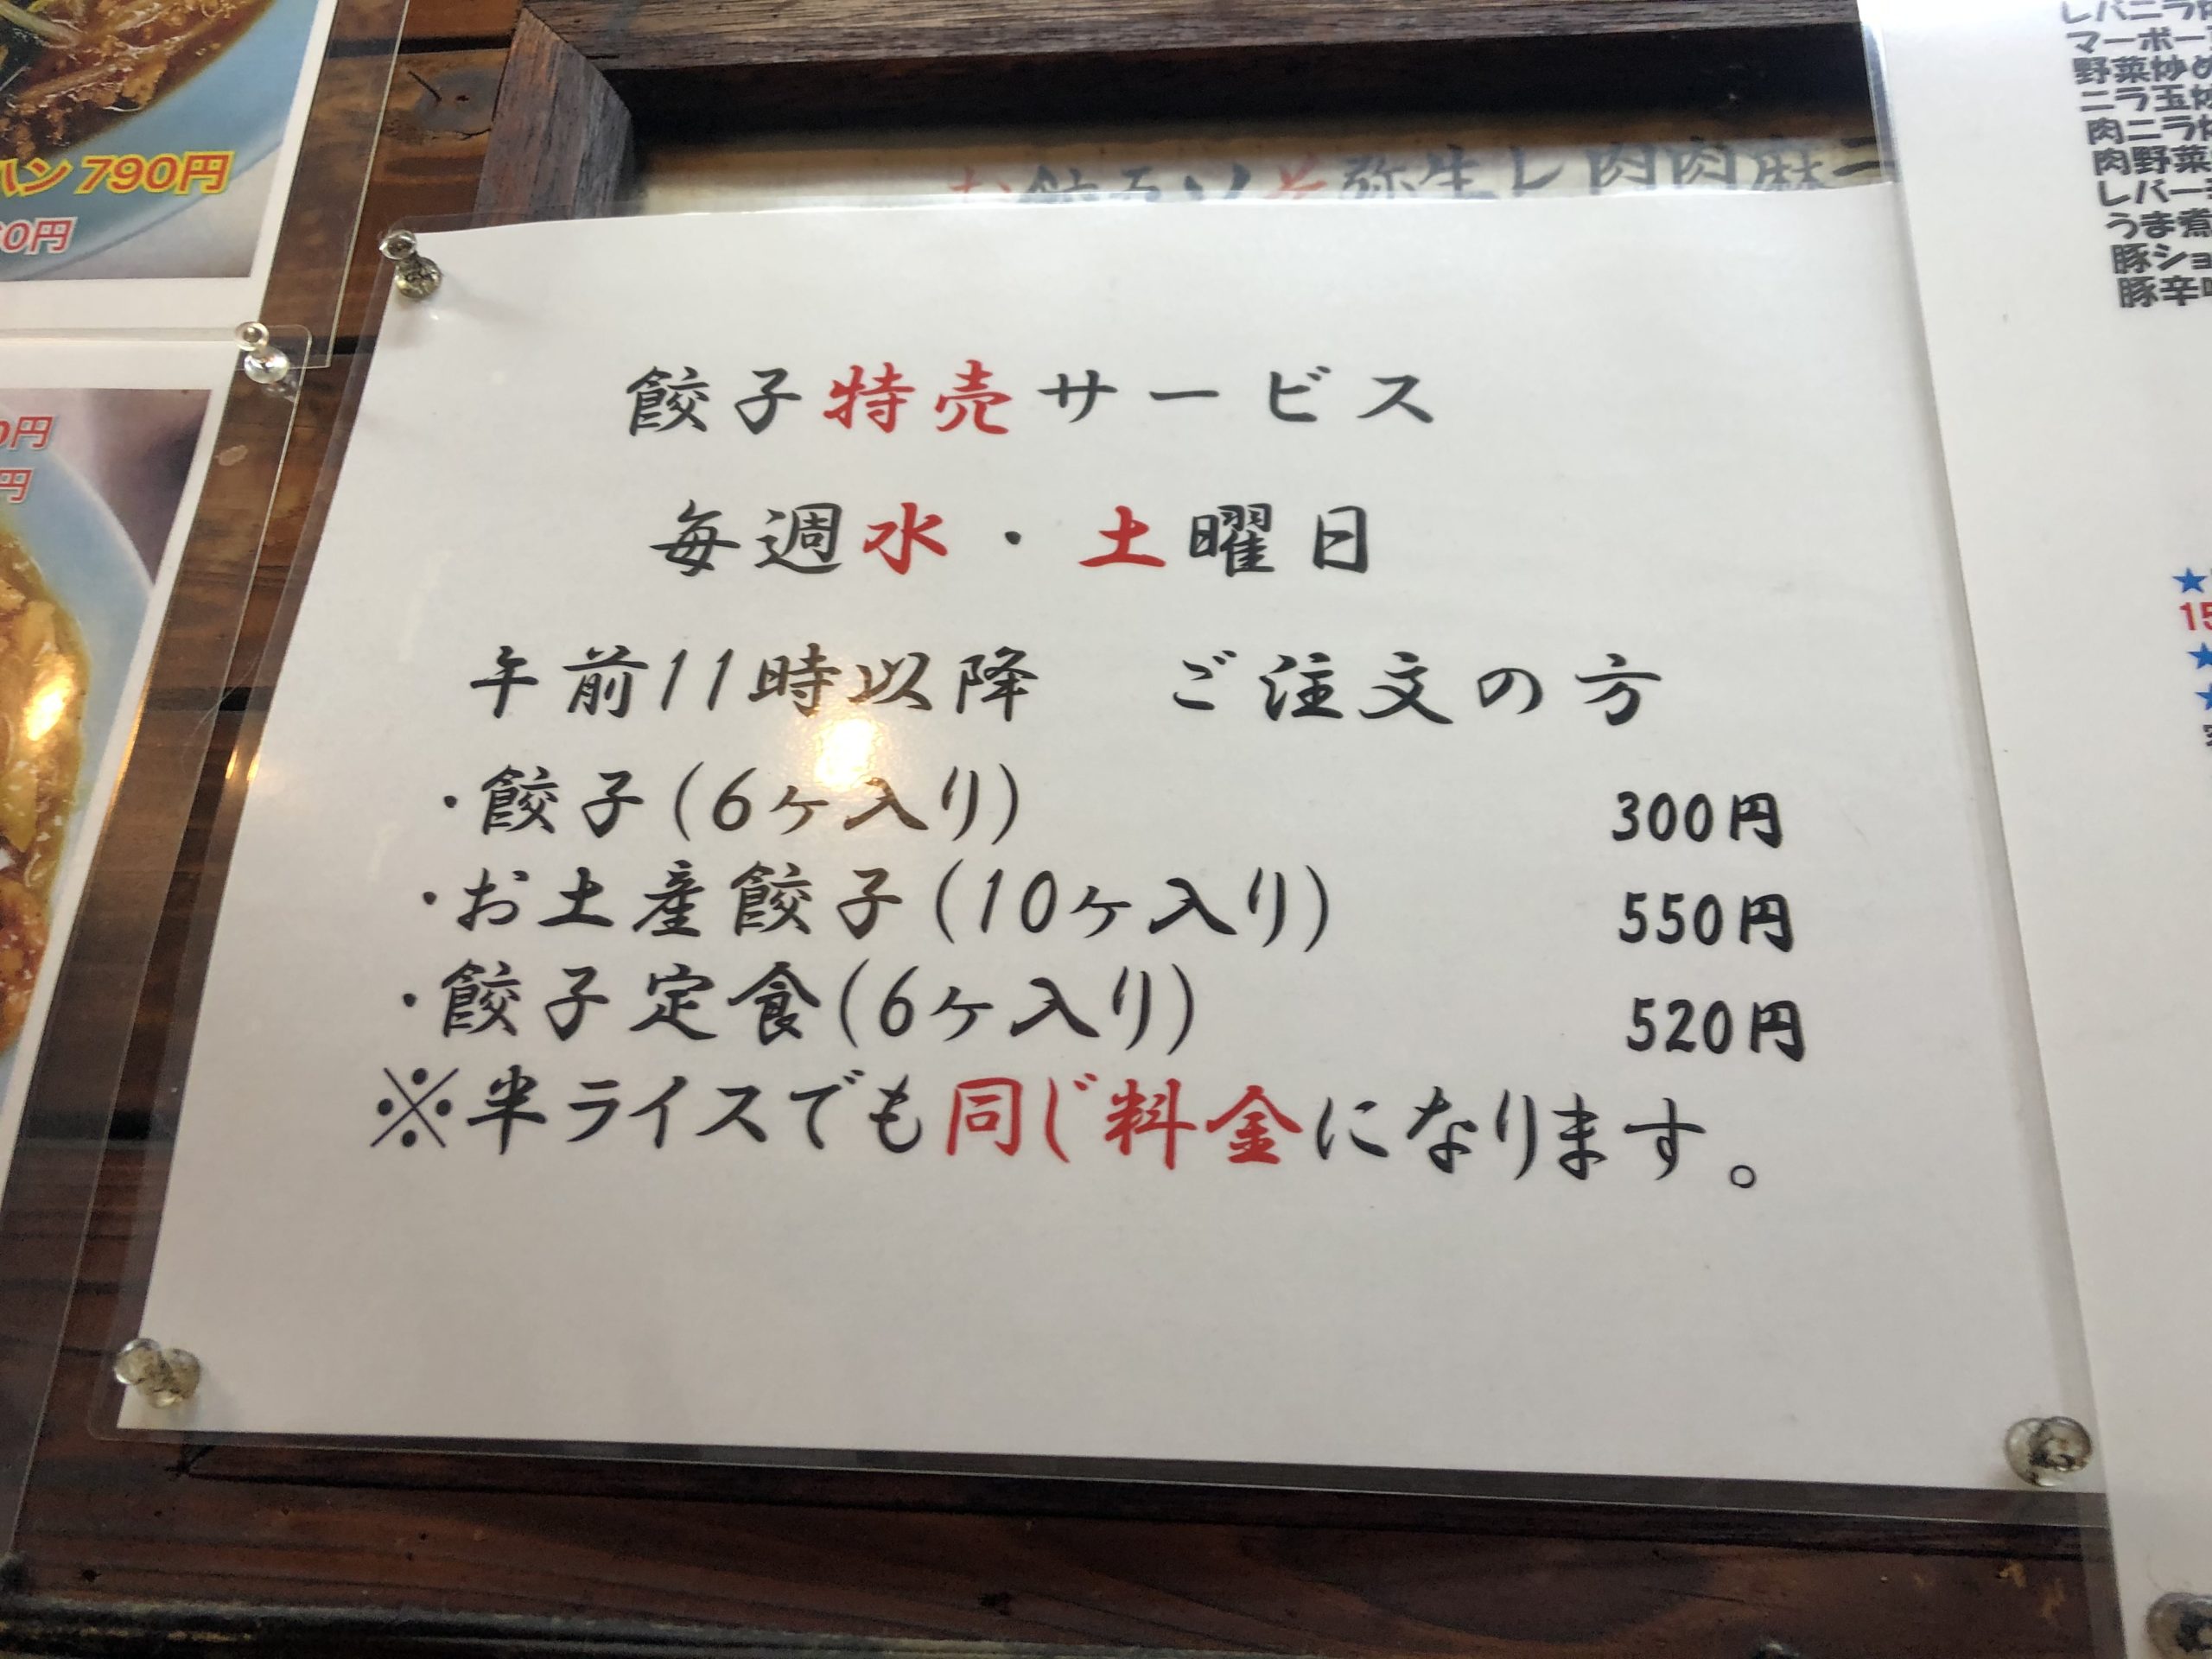 ハン 790円
餃子特売サービス
毎週水・土曜日
午前11時以降　ご注文の方
・餃子(6ヶ入り)　300円
・お土産餃子(10ヶ入り)　550円
・餃子定食(6ヶ入り)　520円
※半ライスでも同じ料金になります。
レバニラ
マーボー
野菜炒め
ニラ玉
肉ニラ
肉野菜
レバー
うま煮
豚ショ
豚辛